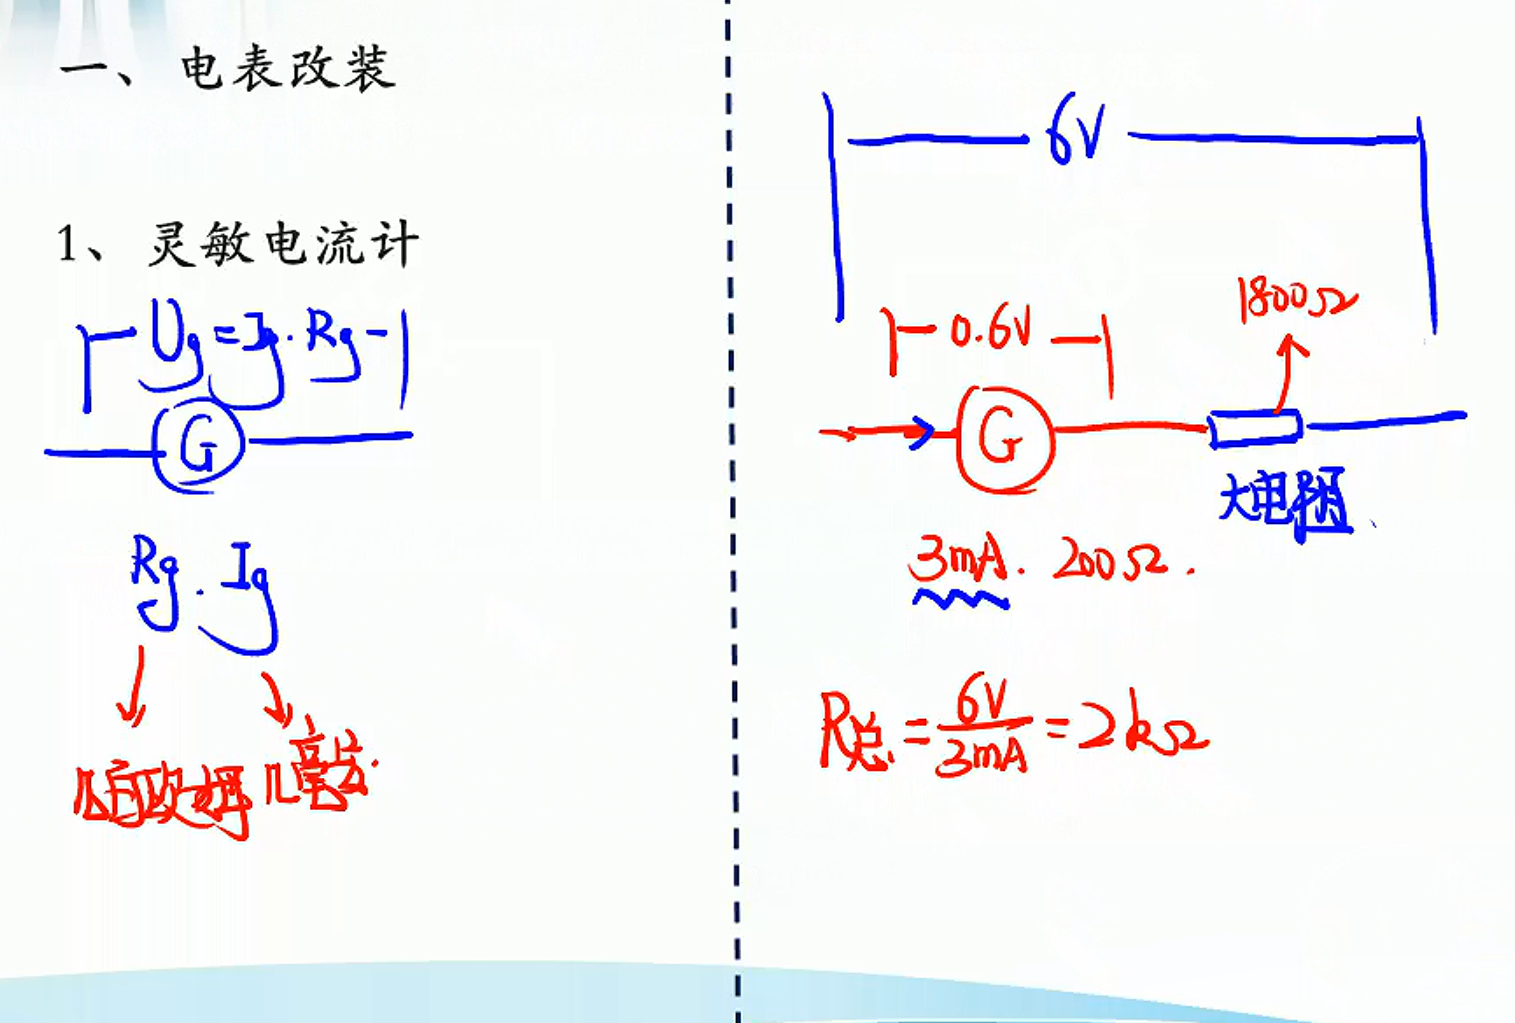 一、电表改装
1、灵敏电流计
Ug=Ig·Rg
G
Rg.Ig
几百欧姆 几毫安.
6V
0.6V
1800Ω
G
大电阻.
3mA. 200Ω.
R总=6V/3mA=2kΩ